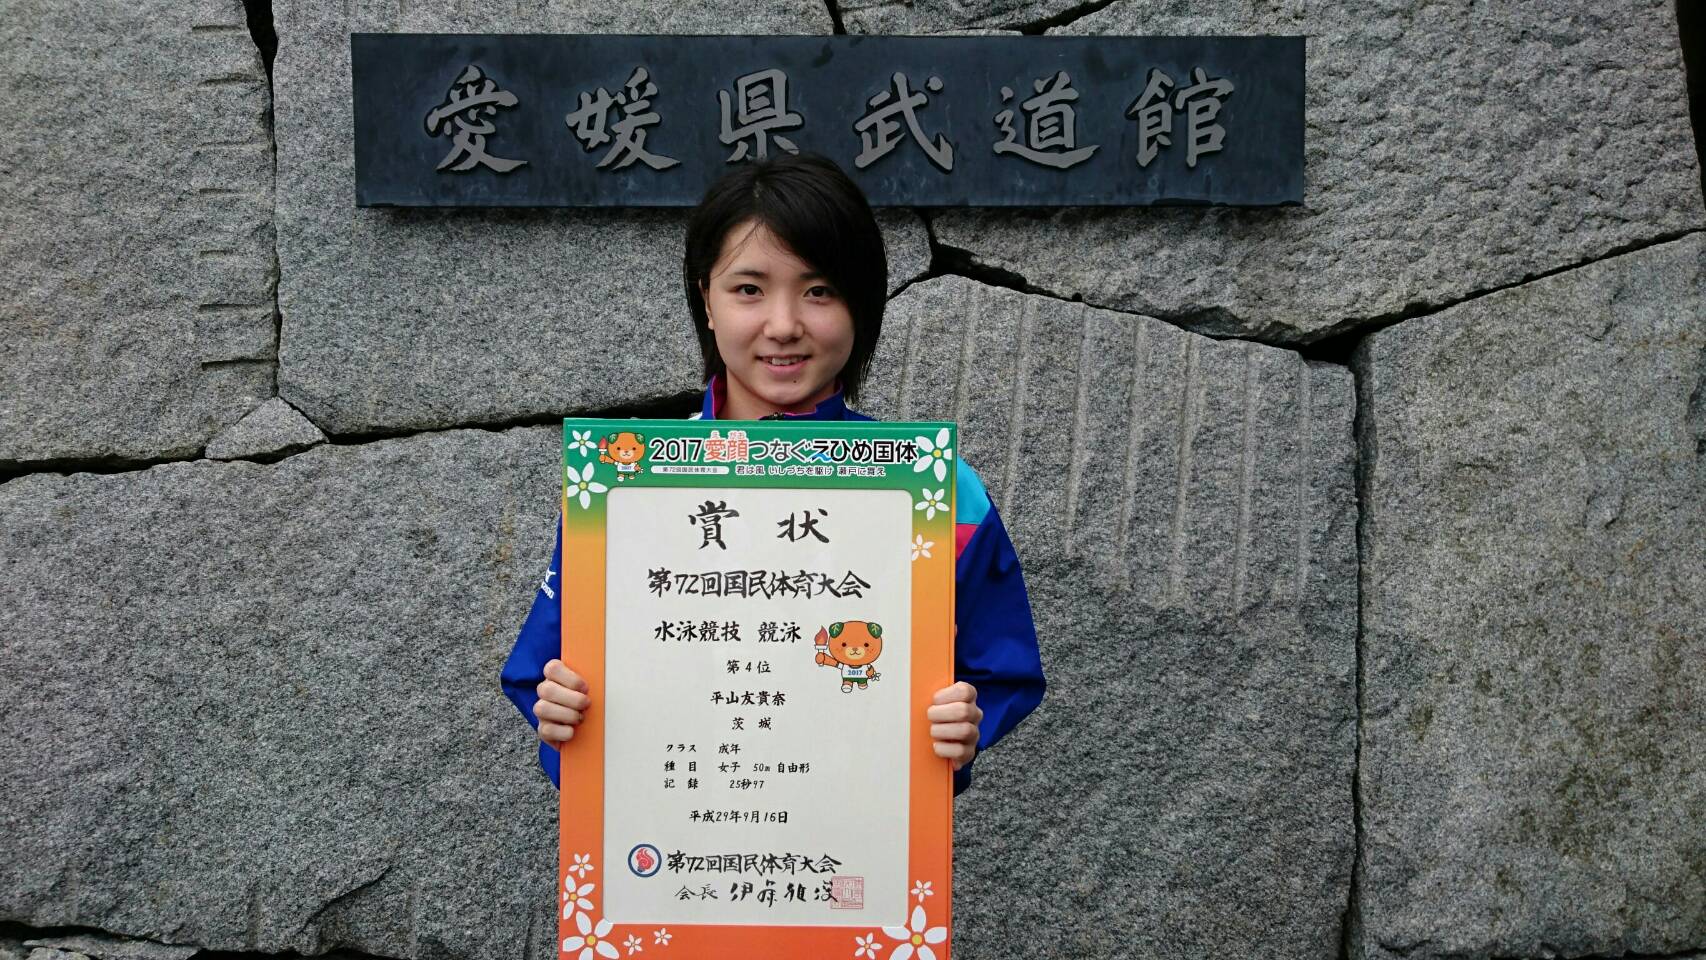 愛媛県武道館
2017愛顔つなぐえひめ国体
え がお
第72回国民体育大会 君は風 いしづちを駆け 瀬戸に舞え
2017
賞状
第72回国民体育大会
水泳競技 競泳
2017
第4位
平山友貴奈
茨城
クラス 成年
種目 女子 50m 自由形
記録 25秒97
平成29年9月16日
第72回国民体育大会
会長 伊藤雅俊